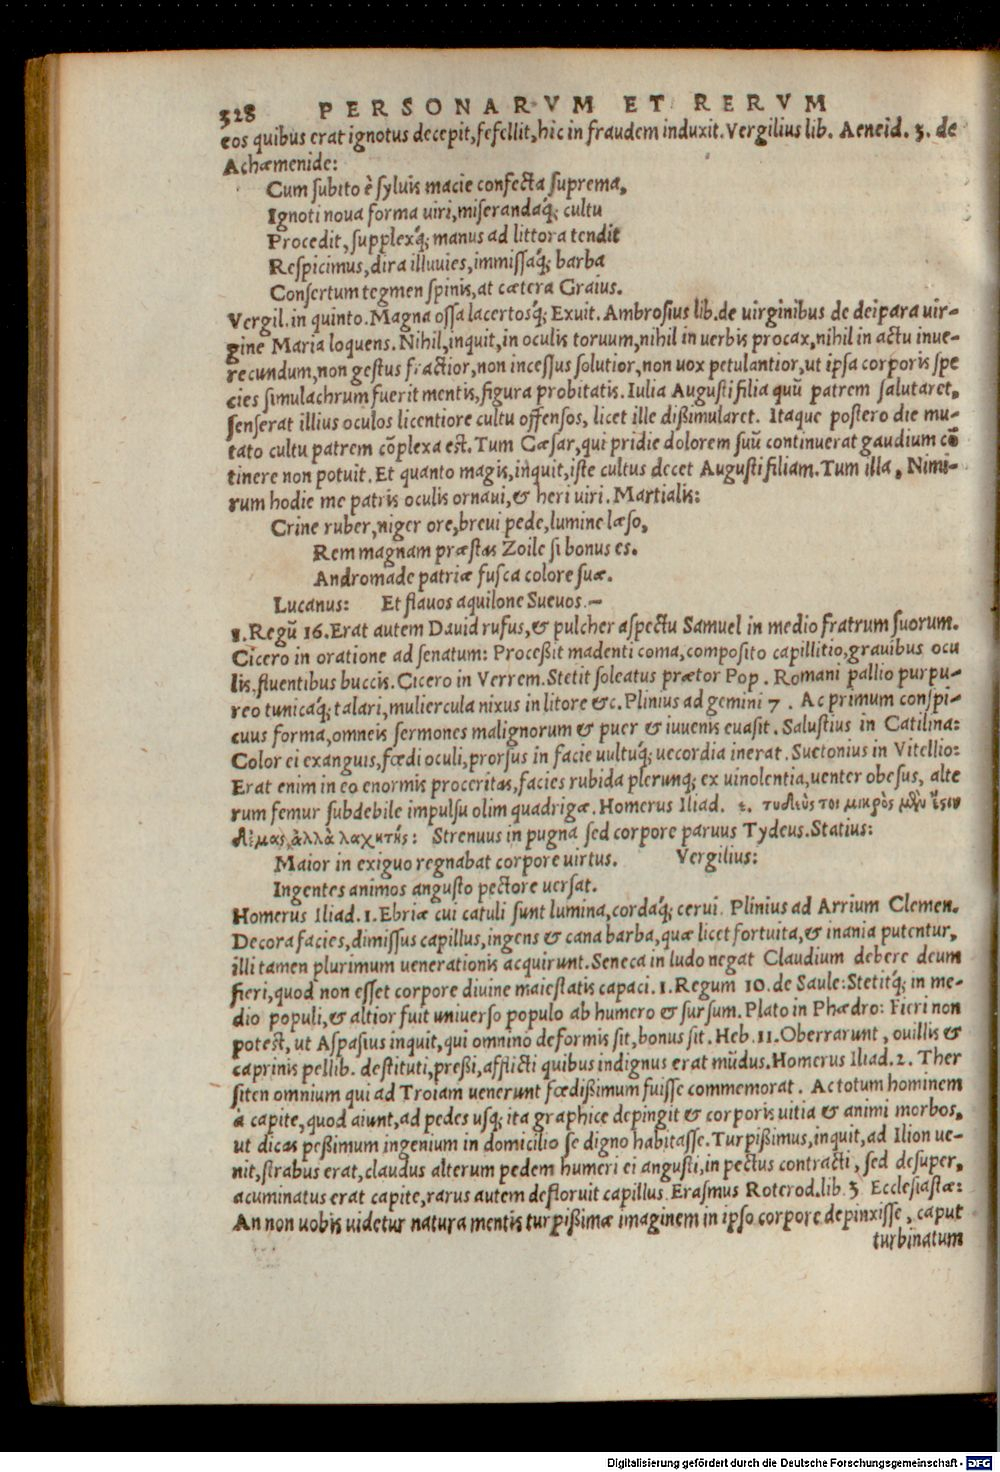 328 PERSONARVM ET RERVM
eos quibus erat ignotus decepit, fefellit, hic in fraudem induxit. Vergilius lib. Aeneid. 3. de
Achæmenide:
Cum subito è syluis macie confecta suprema,
Ignoti noua forma uiri, miserandaq́; cultu
Procedit, supplexq́; manus ad littora tendit
Respicimus, dira illuuies, immissaq́; barba
Consertum tegmen spinis, at cætera Graius.
Vergil. in quinto. Magna ossa lacertosq́; Exuit. Ambrosius lib. de uirginibus de deipara uir-
gine Maria loquens. Nihil, inquit, in oculis toruum, nihil in uerbis procax, nihil in actu inue-
recundum, non gestus fractior, non incessus solutior, non uox petulantior, ut ipsa corporis spe
cies simulachrum fuerit mentis, figura probitatis. Iulia Augusti filia quũ patrem salutaret,
senserat illius oculos licentiore cultu offensos, licet ille dißimularet. Itaque postero die mu-
tato cultu patrem cõplexa est. Tum Cæsar, qui pridie dolorem suũ continuerat gaudium cõ
tinere non potuit. Et quanto magis, inquit, iste cultus decet Augusti filiam. Tum illa, Nimi-
rum hodie me patris oculis ornaui, & heri uiri. Martialis:
Crine ruber, niger ore, breui pede, lumine læso,
Rem magnam præstas Zoile si bonus es.
Andromade patriæ fusca colore suæ.
Lucanus: Et flauos aquilone Sueuos.—
1. Regũ 16. Erat autem Dauid rufus, & pulcher aspectu Samuel in medio fratrum suorum.
Cicero in oratione ad senatum: Proceßit madenti coma, composito capillitio, grauibus ocu
lis, fluentibus buccis. Cicero in Verrem. Stetit soleatus prætor Pop. Romani pallio purpu-
reo tunicaq́; talari, muliercula nixus in litore &c. Plinius ad gemini 7. Ac primum conspi-
cuus forma, omneis sermones malignorum & puer & iuuenis euasit. Salustius in Catilina:
Color ei exanguis, fœdi oculi, prorsus in facie uultuq́; uecordia inerat. Suetonius in Vitellio:
Erat enim in eo enormis proceritas, facies rubida plerunq; ex uinolentia, uenter obesus, alte
rum femur subdebile impulsu olim quadrigæ. Homerus Iliad. ε. τυδεὺς τοι μικρὸς μὲν ἔην
δέμας, ἀλλὰ μαχητής: Strenuus in pugna sed corpore paruus Tydeus. Statius:
Maior in exiguo regnabat corpore uirtus. Vergilius:
Ingentes animos angusto pectore uersat.
Homerus Iliad. 1. Ebriæ cui catuli sunt lumina, cordaq́; cerui. Plinius ad Arrium Clemen.
Decora facies, dimissus capillus, ingens & cana barba, quæ licet fortuita, & inania putentur,
illi tamen plurimum uenerationis acquirunt. Seneca in ludo negat Claudium debere deum
fieri, quod non esset corpore diuine maiestatis capaci. 1. Regum 10. de Saule: Stetitq́; in me-
dio populi, & altior fuit uniuerso populo ab humero & sursum. Plato in Phædro: Fieri non
potest, ut Aspasius inquit, qui omnino deformis sit, bonus sit. Heb. 11. Oberrarunt, ouillis &
caprinis pellib. destituti, preßi, afflicti quibus indignus erat mũdus. Homerus Iliad. 2. Ther
siten omnium qui ad Troiam uenerunt fœdißimum fuisse commemorat. Ac totum hominem
à capite, quod aiunt, ad pedes usq; ita graphice depingit & corporis uitia & animi morbos,
ut dicas peßimum ingenium in domicilio se digno habitasse. Turpißimus, inquit, ad Ilion ue-
nit, strabus erat, claudus alterum pedem humeri ei angusti, in pectus contracti, sed desuper,
acuminatus erat capite, rarus autem defloruit capillus. Erasmus Roterod. lib. 3 Ecclesiastæ:
An non uobis uidetur natura mentis turpißimæ imaginem in ipso corpore depinxisse, caput
turbinatum
Digitalisierung gefördert durch die Deutsche Forschungsgemeinschaft - DFG